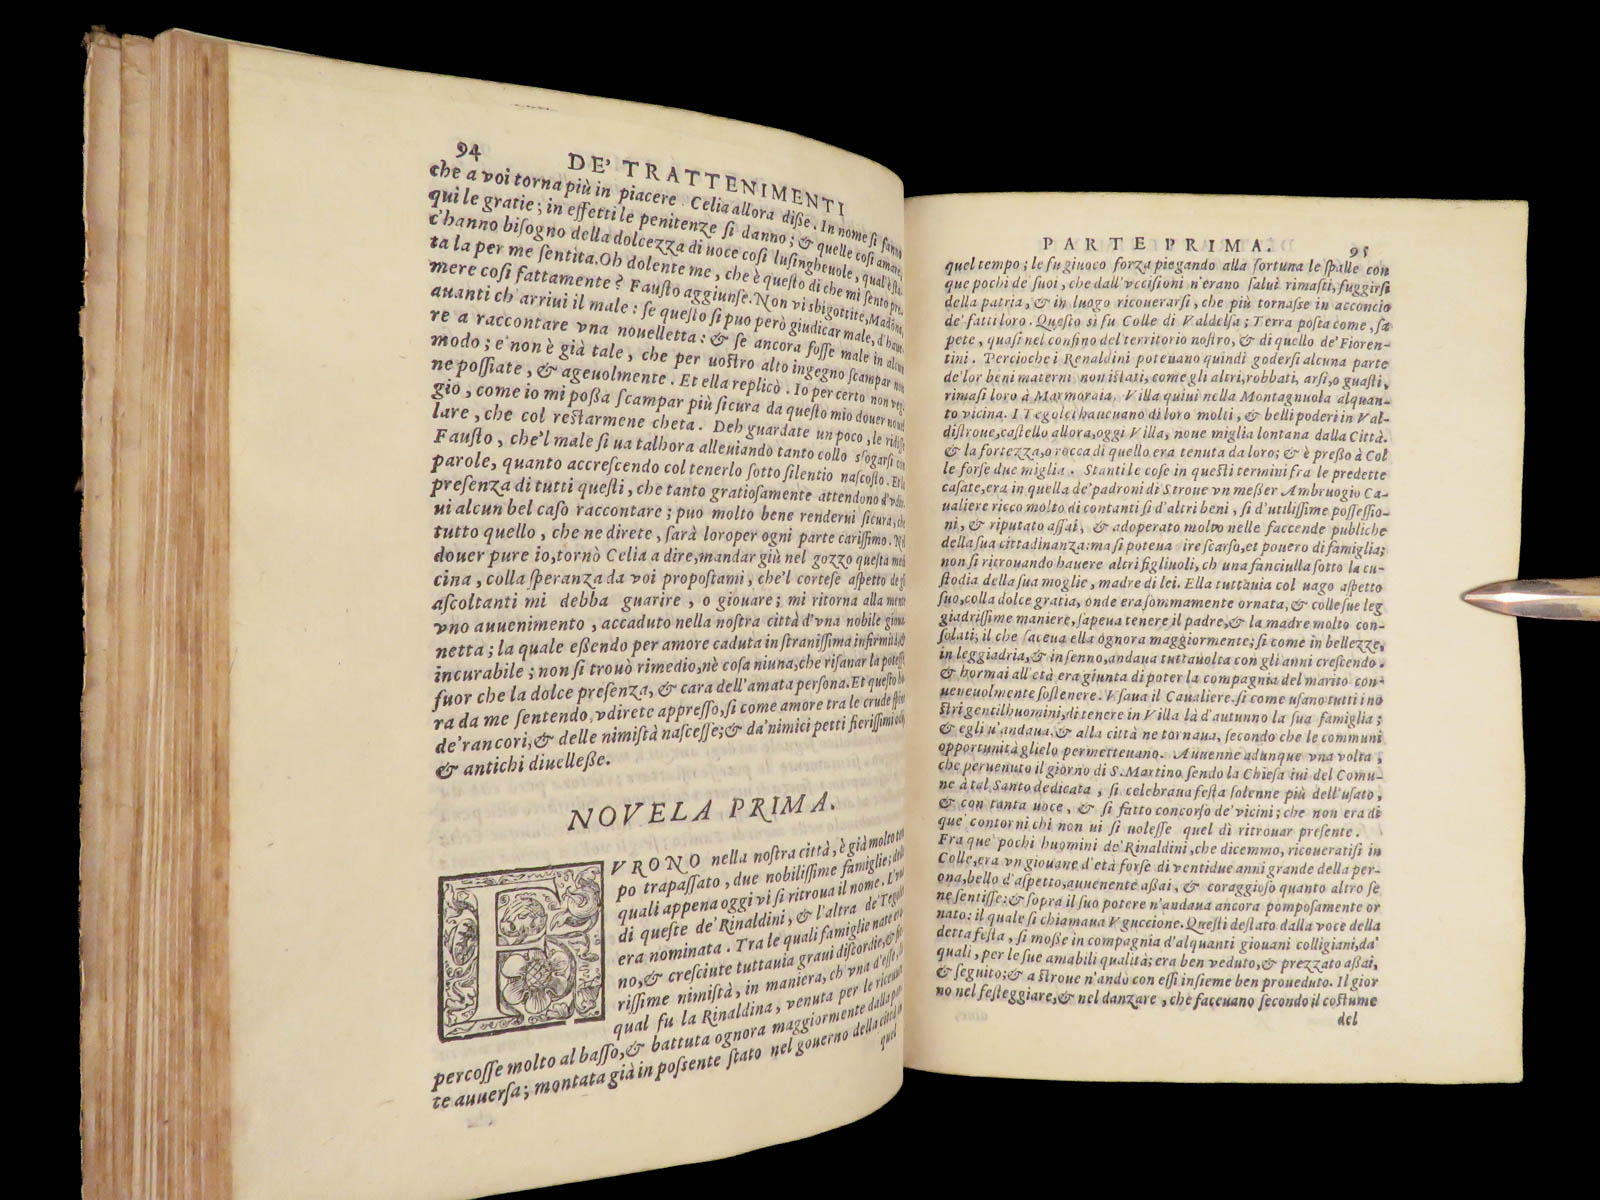 94
DE' TRATTENIMENTI
che a voi torna più in piacere. Celia allora diſſe. In nome ſi fanno
qui le gratie; in effetti le penitenze ſi danno; & quelle coſi amare,
c'hanno biſogno della dolcezza di uoce coſi luſingheuole, qual'è ſta
ta la per me ſentita. Oh dolente me, che è queſto di che mi ſento pre
mere coſi fattamente? Fauſto aggiunſe. Non vi sbigottite, Madõna,
auanti ch'arriui il male: ſe queſto ſi puo però giudicar male, d'haue
re a raccontare vna nouelletta: & ſe ancora foſſe male in alcun
modo; e' non è già tale, che per uoſtro alto ingegno ſcampar non
ne poſſiate, & ageuolmente. Et ella replicò. Io per certo non veg
gio, come io mi poſſa ſcampar più ſicura da queſto mio douer nouel
lare, che col reſtarmene cheta. Deh guardate un poco, le ridiſſe
Fauſto, che'l male ſi ua talhora alleuiando tanto collo sfogarſi con
parole, quanto accreſcendo col tenerlo ſotto ſilentio naſcoſto. Et la
preſenza di tutti queſti, che tanto gratioſamente attendono d'vdir
ui alcun bel caſo raccontare; puo molto bene renderui ſicura, che
tutto quello, che ne direte, ſarà loro per ogni parte cariſſimo. Nel
douer pure io, tornò Celia a dire, mandar giù nel gozzo queſta medi
cina, colla ſperanza da voi propoſtami, che'l corteſe aſpetto de gli
aſcoltanti mi debba guarire, o giouare; mi ritorna alla mente
vno auuenimento, accaduto nella noſtra città d'vna nobile gioua
netta; la quale eſſendo per amore caduta in ſtraniſſima infirmità, &
incurabile; non ſi trouò rimedio, nè coſa niuna, che riſanar la poteſſe
fuor che la dolce preſenza, & cara dell'amata perſona. Et queſto ho
ra da me ſentendo, vdirete appreſſo, ſi come amore tra le crude ſpine
de'rancori, & delle nimiſtà naſceſſe; & da'nimici petti fieriſſimi odij,
& antichi diuelleſſe.
NOVELA PRIMA.
FVRONO nella noſtra città, è già molto tem
po trapaſſato, due nobiliſſime famiglie; delle
quali appena oggi vi ſi ritroua il nome. L'vna
di queſte de' Rinaldini, & l'altra de' Tegolei
era nominata. Tra le quali famiglie nate era
no, & creſciute tuttauia graui diſcordie, & fie
riſſime nimiſtà, in maniera, ch'vna d'eſſe, la
qual fu la Rinaldina, venuta per le riceuute
percoſſe molto al baſſo, & battuta ognora maggiormente dalla par
te auuerſa; montata già in poſſente ſtato nel gouerno della città in
quel
PARTE PRIMA. 95
quel tempo; le fu giuoco forza piegando alla fortuna le ſpalle con
que pochi de' ſuoi, che dall'vcciſioni n'erano ſalui rimaſti, fuggirſi
della patria, & in luogo ricouerarſi, che più tornaſſe in acconcio
de' fatti loro. Queſto ſi fu Colle di Valdelſa; Terra poſta come, ſa
pete, quaſi nel confino del territorio noſtro, & di quello de' Fioren-
tini. Percioche i Renaldini poteuano quindi goderſi alcuna parte
de'lor beni materni non iſtati, come gli altri, robbati, arſi, o guaſti,
rimaſi loro à Marmoraia, Villa quiui nella Montagnuola alquan-
to vicina. I Tegolei haueuano di loro molti, & belli poderi in Val-
diſtroue, caſtello allora, oggi Villa, noue miglia lontana dalla Città.
& la fortezza, o rocca di quello era tenuta da loro; & è preſſo à Col
le forſe due miglia. Stanti le coſe in queſti termini fra le predette
caſate, era in quella de' padroni di Stroue vn meſſer Ambruogio Ca-
ualiere ricco molto di contanti ſi d'altri beni, ſi d'utiliſſime poſſeſſio-
ni, & riputato aſſai, & adoperato molto nelle faccende publiche
della ſua cittadinanza: ma ſi poteua ire ſcarſo, et pouero di famiglia;
non ſi ritrouando hauere altri figliuoli, ch'una fanciulla ſotto la cu-
ſtodia della ſua moglie, madre di lei. Ella tuttauia col uago aſpetto
ſuo, colla dolce gratia, onde era ſommamente ornata, & colle ſue leg
giadriſſime maniere, ſapeua tenere il padre, & la madre molto con-
ſolati; il che faceua ella ognora maggiormente; ſi come in bellezze,
in leggiadria, & in ſenno, andaua tuttauolta con gli anni creſcendo.
& hormai all'età era giunta di poter la compagnia del marito con-
ueneuolmente ſoſtenere. Vſaua il Caualiere, ſi come uſano tutti i no
ſtri gentilhuomini, di tenere in Villa là d'autunno la ſua famiglia;
& egli u'andaua, & alla città ne tornaua, ſecondo che le communi
opportunità glielo permetteuano. Auuenne adunque vna volta,
che peruenuto il giorno di S. Martino ſendo la Chieſa iui del Comu-
ne à tal Santo dedicata, ſi celebraua feſta ſolenne più dell'uſato,
& con tanta uoce, & ſi fatto concorſo de' vicini; che non era di
que' contorni chi non ui ſi uoleſſe quel dì ritrouar preſente.
Fra que' pochi huomini de' Rinaldini, che dicemmo, ricoueratiſi in
Colle, era vn giouane d'età forſe di ventidue anni grande della per-
ona, bello d'aſpetto, auuenente aſſai, & coraggioſo quanto altro ſe
ne ſentiſſe: & ſopra il ſuo potere n'andaua ancora pompoſamente or
nato: il quale ſi chiamaua Vguccione. Queſti deſtato dalla voce della
detta feſta, ſi moſſe in compagnia d'alquanti giouani colligiani, da'
quali, per le ſue amabili qualità; era ben veduto, & prezzato aſſai,
& ſeguito; & a ſtroue n'andò con eſſi inſieme ben proueduto. Il gior
no nel feſteggiare, & nel danzare, che faceuano ſecondo il coſtume
del